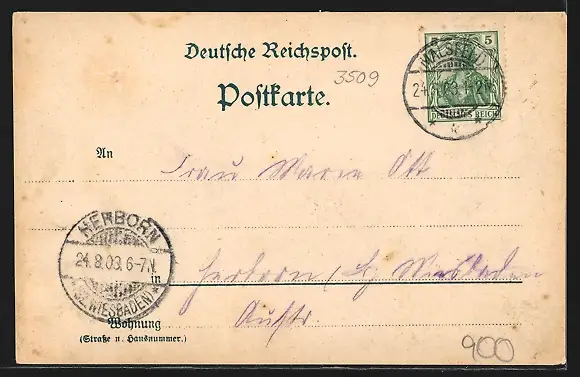 Deutsche Reichspost.
3509
Postkarte.
5
DEUTSCHES REICH
24. 8. 03.
An
Frau Marie Ott
HERBORN
24.8.03. 6-7N.
(BZ. WIESBADEN)
in
Herborn, Bz Wiesbaden
Wohnung
(Straße u. Hausnummer.)
900